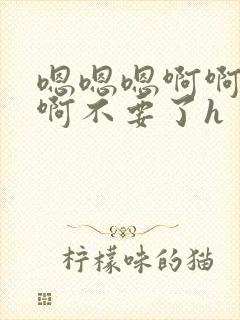 嗯嗯嗯啊啊
啊不要了h
柠檬味的猫